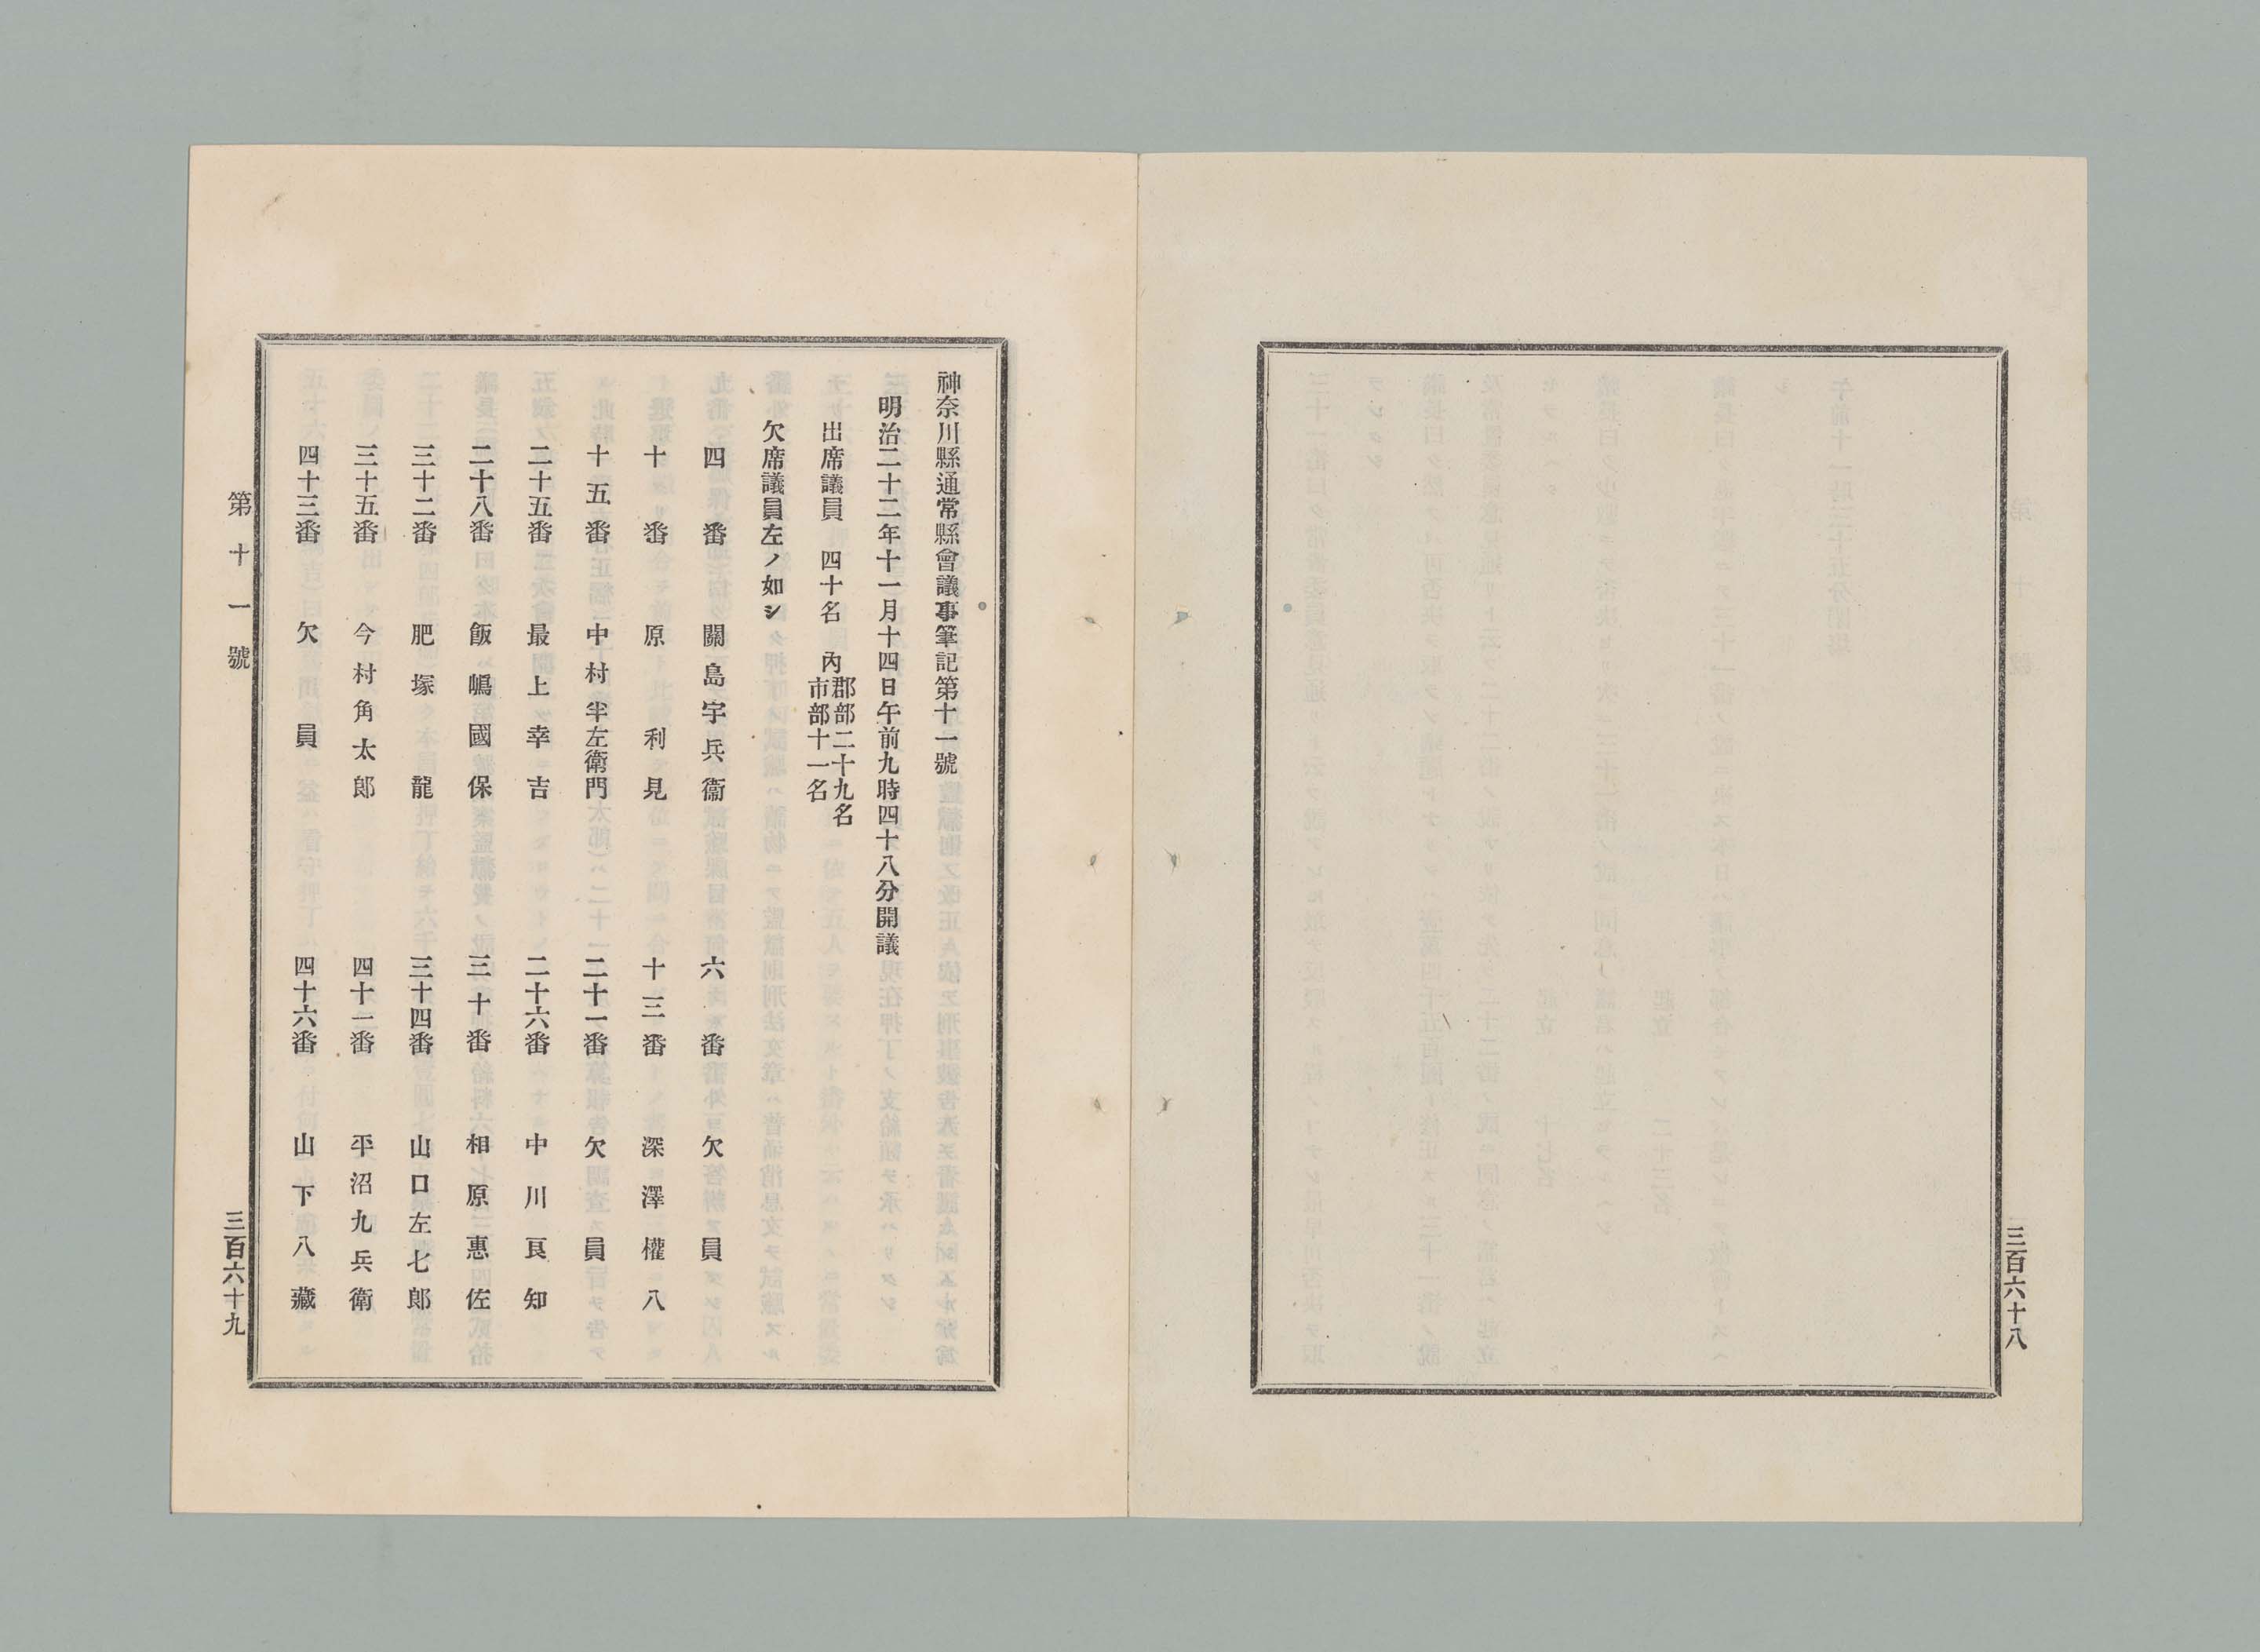 三百六十八
神奈川縣通常縣會議事筆記第十一號
明治二十二年十一月十四日午前九時四十八分開議
出席議員 四十名 內 郡部二十九名 市部十一名
欠席議員左ノ如シ
四番 關島宇兵衞 六番 欠員
十番 原利見 十三番 深澤權八
十五番 中村半左衛門 二十一番 欠員
二十五番 最上幸吉 二十六番 中川良知
二十八番 飯嶋國保 三十番 相原惠佐
三十二番 肥塚龍 三十四番 山口左七郎
三十五番 今村角太郎 四十一番 平沼九兵衛
四十三番 欠員 四十六番 山下八藏
第十一號
三百六十九